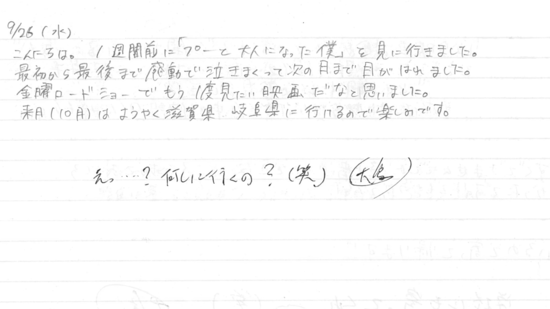 9/26(水)
こんにちは。1週間前に「プーと大人になった僕」を見に行きました。
最初から最後まで感動で泣きまくって次の日まで目がはれました。
金曜ロードショーでもう1度見たい映画だなと思いました。
来月(10月)はようやく滋賀県 岐阜県に行けるので楽しみです。
えっ…?何しに行くの?(笑)(大島)